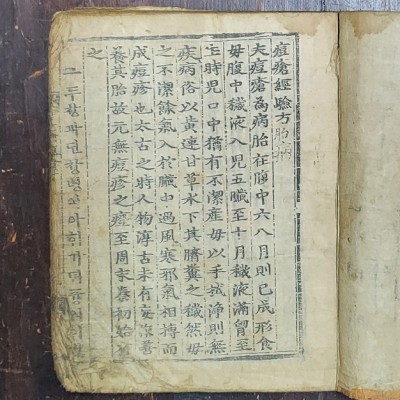 痘瘡經驗方
夫痘瘡為病胎在腹中六八月則已成形食
母腹中穢液入兒五臟至十月穢液滿胃至
生時兒口中猶有不潔産母以手拭淨則無
疾病俗以黄連甘草水下其臍糞之穢然母
之不潔餘氣入於臟中遇風寒邪氣相搏而
成痘疹也太古之時人物淳古未有
養其胎故元無痘疹之
至周末秦初始
之
그 두창